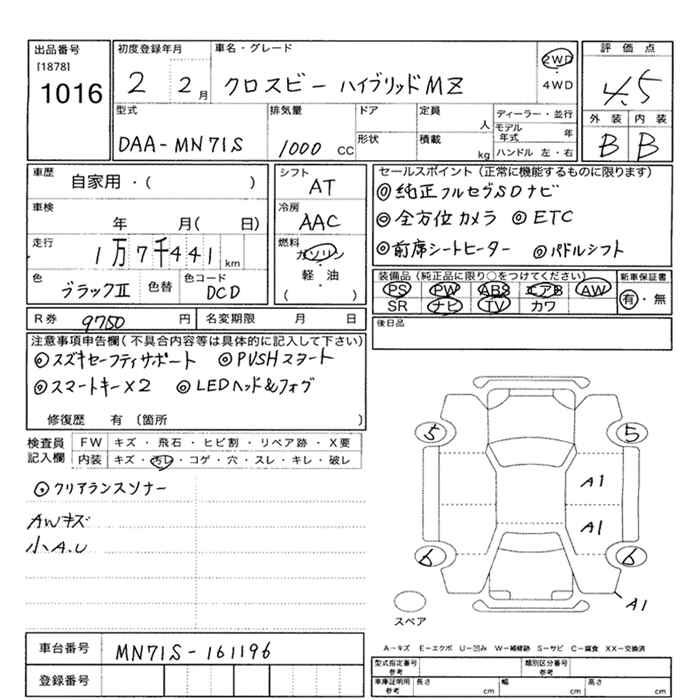 出品番号 初度登録年月 車名・グレード 2WD 評価点
[1878] ・
1016 2 2月 クロスビー ハイブリッドMZ 4WD 4.5
型式 排気量 ドア 定員 ディーラー・並行 外装 内装
人 モデル年式 年
DAA-MN71S 1000 CC 形状 積載 kg ハンドル 左・右 B B
車歴 自家用・( ) シフト AT セールスポイント(正常に機能するものに限ります)
◎純正フルセグSDナビ
車検 年 月( 日) 冷房 AAC ◎全方位カメラ ◎ETC
走行 1万7千441km 燃料 ガソリン ◎前席シートヒーター ◎パドルシフト
・軽・油
色 ブラックⅡ 色替 色コード DCD ( ) 装備品(純正品に限り○をつけてください) 新車保証書
PS PW ABS エアB AW 有・無
SR ナビ TV カワ
R券 9750円 名変期限 月 日 後日品
注意事項申告欄(不具合内容等は具体的に記入して下さい)
◎スズキセーフティサポート ◎PUSHスタート
◎スマートキー×2 ◎LEDヘッド&フォグ
修復歴 有 〔箇所 〕
検査員 FW キズ・飛石・ヒビ割・リペア跡・X要
記入欄 内装 キズ・汚レ・コゲ・穴・スレ・キレ・破レ
◎クリアランスソナー
AWキズ
小A.U
5 5
A1
A1
6 6
A1
スペア
車台番号 MN71S-161196
A-キズ E-エクボ U-凹み W-補修跡 S-サビ C-腐食 XX-交換済
型式指定番号 参考 類別区分番号 参考
登録番号 車庫証明用 参考 長さ cm 幅 cm 高さ cm